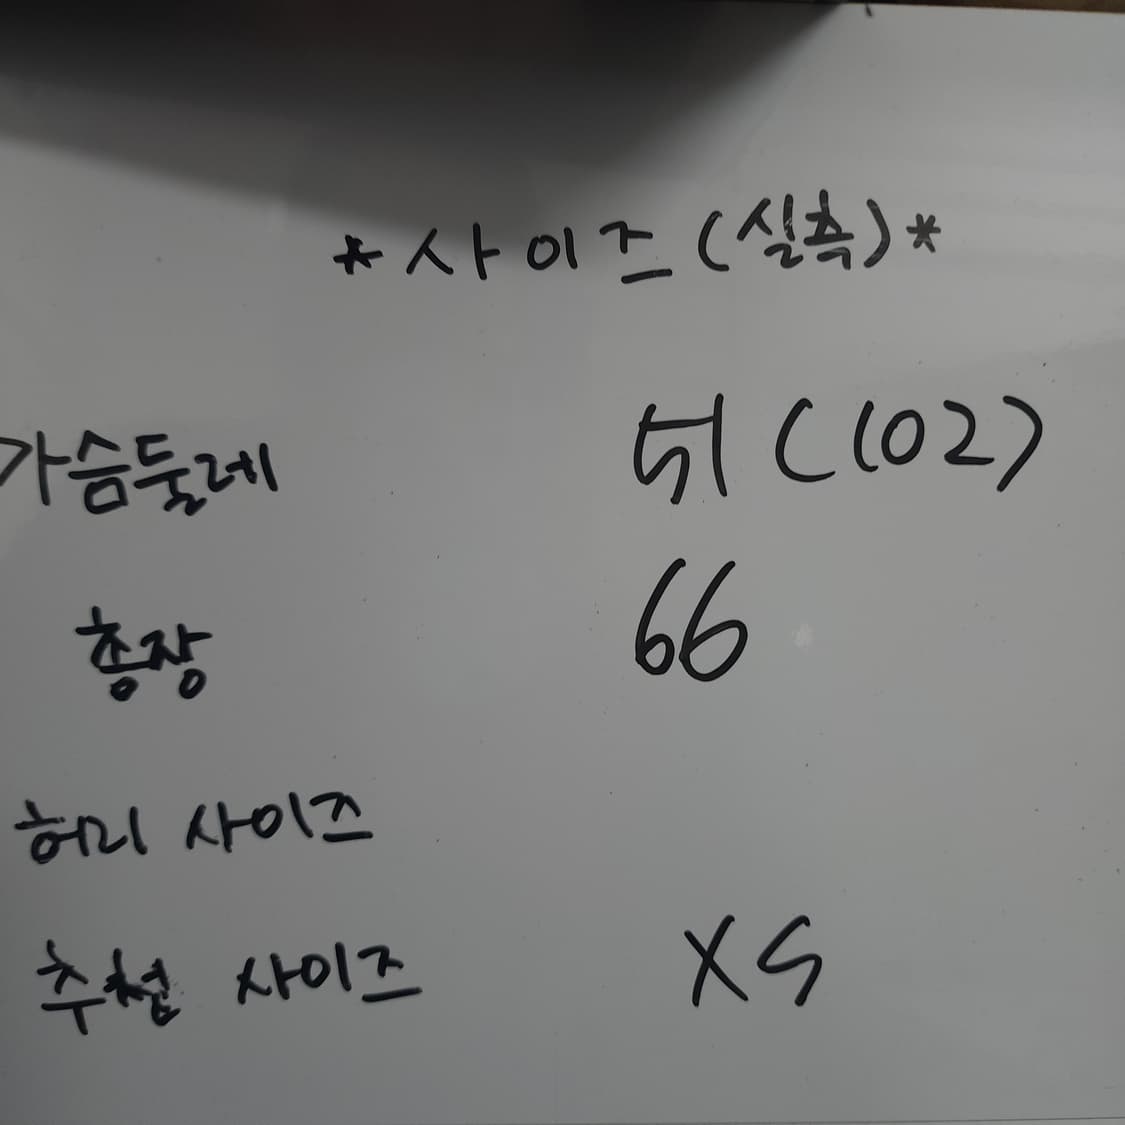 *사이즈(실측)*
가슴둘레 51 (102)
총장 66
허리 사이즈
추천 사이즈 XS